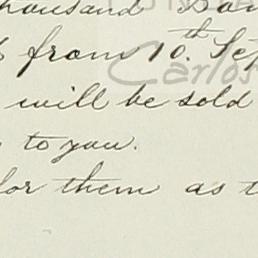 thousand
from 10.th Sep
will be sold
to you.
for them as t